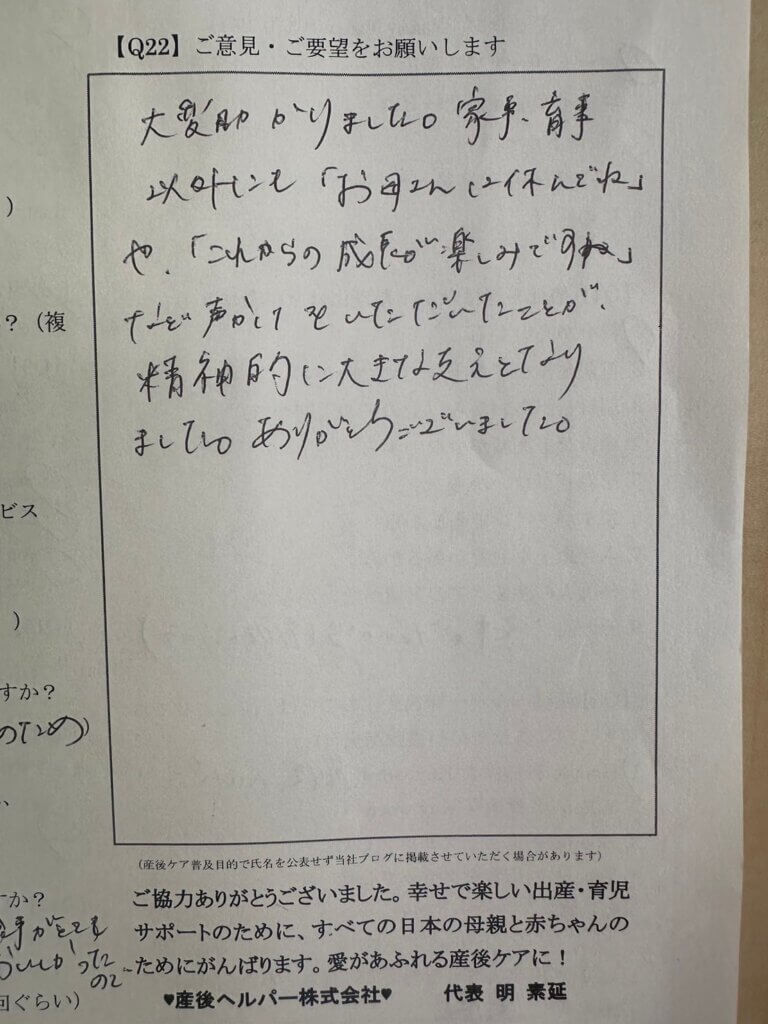 【Q22】ご意見・ご要望をお願いします
大変助かりました。家事、育事
以外にも「お母さんは休んでね」
や、「これからの成長が楽しみですね」
など声かけをいただいたことが、
精神的に大きな支えとなり
ました。ありがとうございました。
)
？（複
ビス
)
すか？
のため）
すか？
回ぐらい）
（産後ケア普及目的で氏名を公表せず当社ブログに掲載させていただく場合があります）
ご協力ありがとうございました。幸せで楽しい出産・育児
サポートのために、すべての日本の母親と赤ちゃんの
ためにがんばります。愛があふれる産後ケアに！
♥産後ヘルパー株式会社♥　代表 明 素延